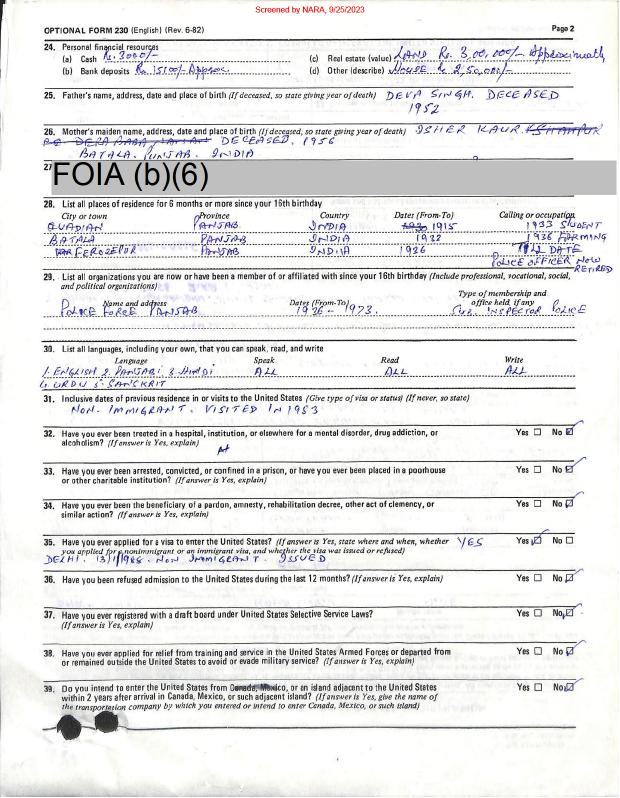 Screened by NARA, 9/25/2023
OPTIONAL FORM 230 (English) (Rev. 6-82) Page 2
24. Personal financial resources
(a) Cash Rs. 3000/- (c) Real estate (value) LAND Rs. 3,00,000/- Approximately
(b) Bank deposits Rs. 15100/- Approx. (d) Other (describe) HOUSE Rs 2,50,000/-
25. Father's name, address, date and place of birth (If deceased, so state giving year of death) DEVA SINGH. DECEASED
1952
26. Mother's maiden name, address, date and place of birth (If deceased, so state giving year of death) ISHER KAUR
DECEASED. 1956
BATALA. PUNJAB. INDIA
27
FOIA (b)(6)
28. List all places of residence for 6 months or more since your 16th birthday
City or town Province Country Dates (From-To) Calling or occupation
QUADIAN PANJAB INDIA 1915 1933 STUDENT
BATALA PANJAB INDIA 1932 1936 FARMING
FEROZEPUR PANJAB INDIA 1936 TILL DATE
POLICE OFFICER NOW
RETIRED
29. List all organizations you are now or have been a member of or affiliated with since your 16th birthday (Include professional, vocational, social,
and political organizations)
Name and address Dates (From-To) Type of membership and
office held, if any
POLICE FORCE PANJAB 1936 - 1973. SUB. INSPECTOR POLICE
30. List all languages, including your own, that you can speak, read, and write
Language Speak Read Write
1. ENGLISH 2. PANJABI 3. HINDI ALL ALL ALL
4. URDU 5. SANSKRIT
31. Inclusive dates of previous residence in or visits to the United States (Give type of visa or status) (If never, so state)
NON-IMMIGRANT. VISITED IN 1983
32. Have you ever been treated in a hospital, institution, or elsewhere for a mental disorder, drug addiction, or Yes ☐ No ☑
alcoholism? (If answer is Yes, explain)
33. Have you ever been arrested, convicted, or confined in a prison, or have you ever been placed in a poorhouse Yes ☐ No ☑
or other charitable institution? (If answer is Yes, explain)
34. Have you ever been the beneficiary of a pardon, amnesty, rehabilitation decree, other act of clemency, or Yes ☐ No ☑
similar action? (If answer is Yes, explain)
35. Have you ever applied for a visa to enter the United States? (If answer is Yes, state where and when, whether YES Yes ☑ No ☐
you applied for a nonimmigrant or an immigrant visa, and whether the visa was issued or refused)
DELHI. NON IMMIGRANT. ISSUED
36. Have you been refused admission to the United States during the last 12 months? (If answer is Yes, explain) Yes ☐ No ☑
37. Have you ever registered with a draft board under United States Selective Service Laws? Yes ☐ No ☑
(If answer is Yes, explain)
38. Have you ever applied for relief from training and service in the United States Armed Forces or departed from Yes ☐ No ☑
or remained outside the United States to avoid or evade military service? (If answer is Yes, explain)
39. Do you intend to enter the United States from Canada, Mexico, or an island adjacent to the United States Yes ☐ No ☑
within 2 years after arrival in Canada, Mexico, or such adjacent island? (If answer is Yes, give the name of
the transportation company by which you entered or intend to enter Canada, Mexico, or such island)